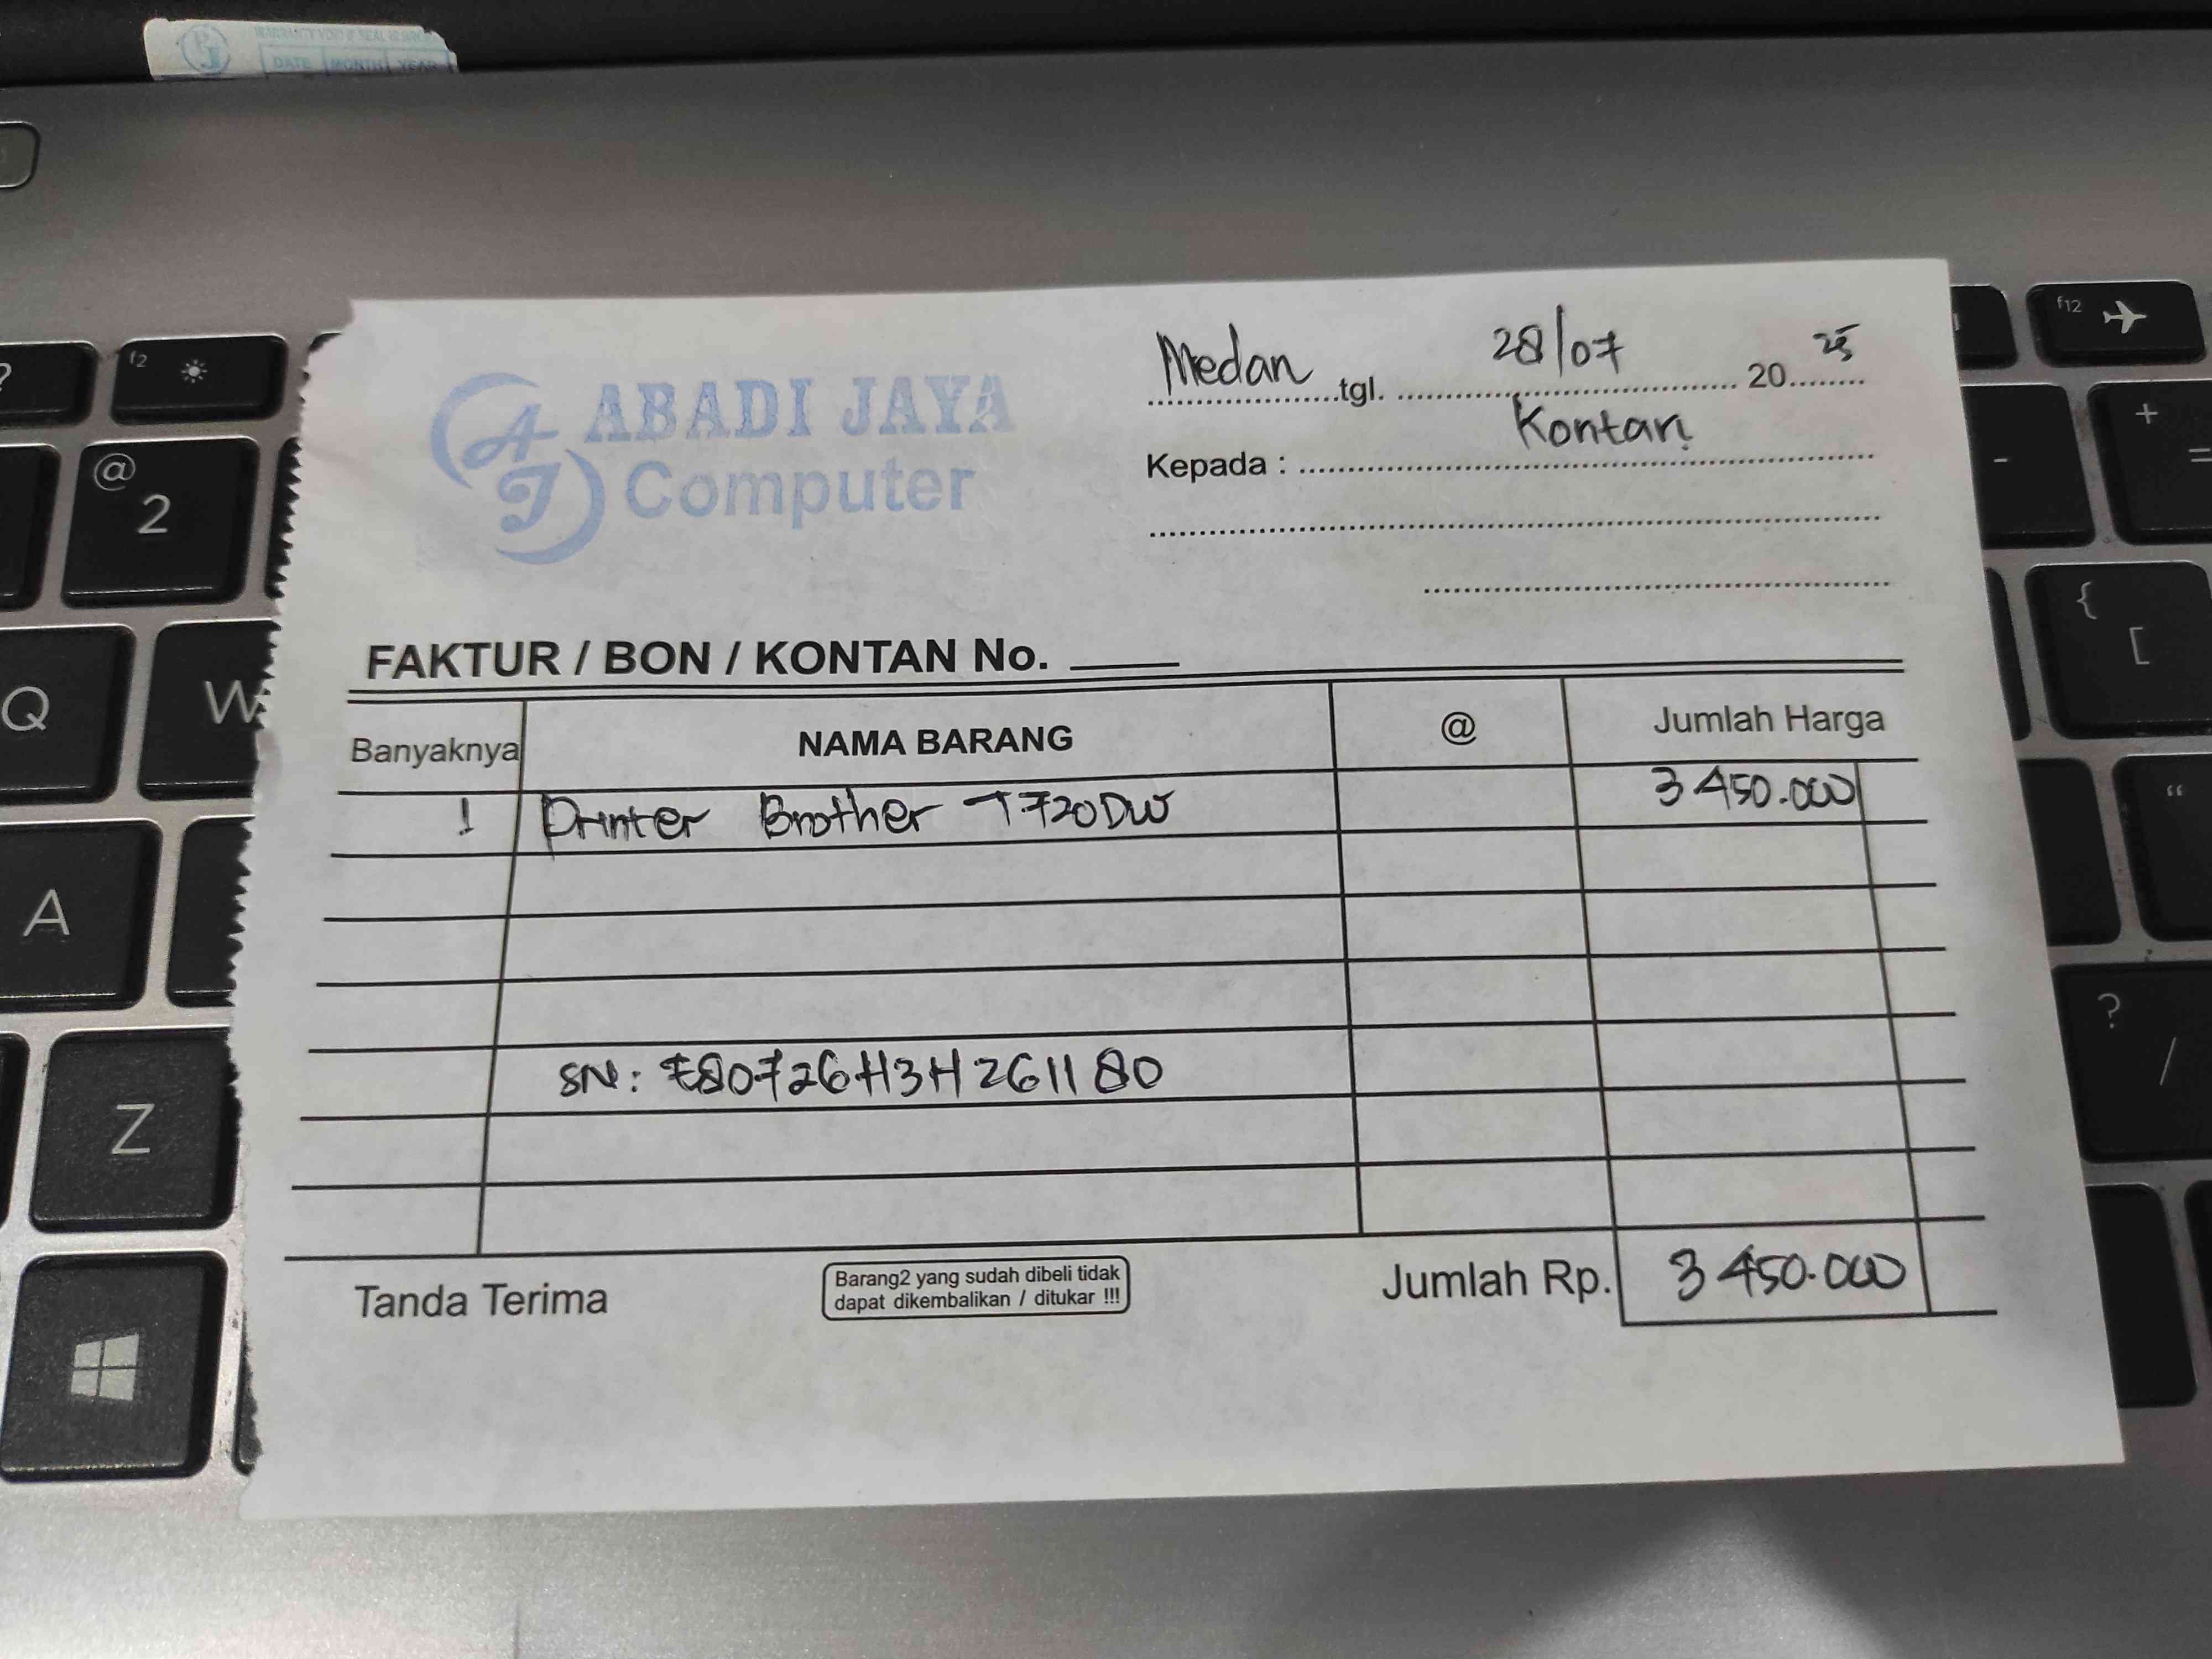 WARRANTY VOID IF SEAL IS
DATE MONTH YEAR
Medan tgl. 28/07 2025
ABADI JAYA
Computer
AJ
Kepada : Kontan
FAKTUR / BON / KONTAN No.
Banyaknya NAMA BARANG @ Jumlah Harga
1 Printer Brother T720DW 3 450.000
SN: E80726H3H261180
Tanda Terima
Barang2 yang sudah dibeli tidak
dapat dikembalikan / ditukar !!!
Jumlah Rp. 3 450.000
f2
f12
@
2
Q
W
A
Z
+
=
-
{
[
“
?
/